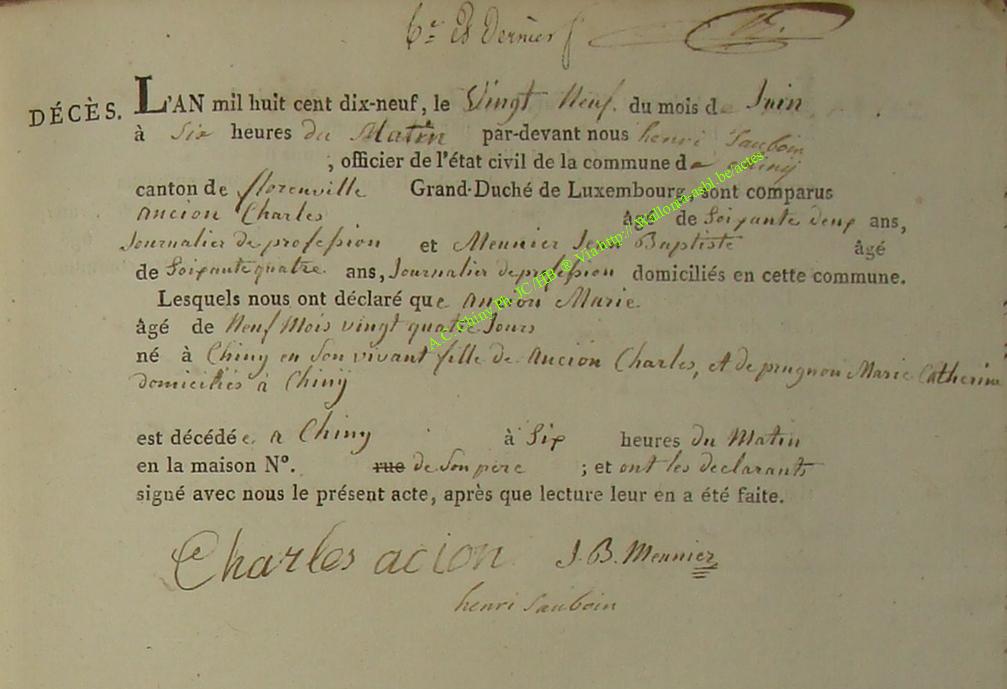 6.e Et Dernier f
DÉCÈS. L'AN mil huit cent dix-neuf, le Vingt Neuf. du mois de Juin
à Six heures du Matin par-devant nous henri Sauboin
, officier de l'état civil de la commune de Chiny
canton de florenville Grand-Duché de Luxembourg, sont comparus
Ancion Charles âgé de Soixante deux ans,
Journalier de profession et Meunier Jean Baptiste âgé
de Soixante quatre ans, Journalier de profession domiciliés en cette commune.
Lesquels nous ont déclaré que Ancion Marie
âgé de Neuf Mois vingt quatre Jours
né à Chiny en Son vivant fille de Ancion Charles, et de prugnon Marie Catherine
domiciliés à Chiny
est décédée a Chiny à Six heures du Matin
en la maison N°. rue de Son père ; et ont les declarants
signé avec nous le présent acte, après que lecture leur en a été faite.
Charles acion J. B. Meunier
henri Sauboin
A.C. Chiny Ph JC/HB ® Via http://Wallonia-asbl.be/actes